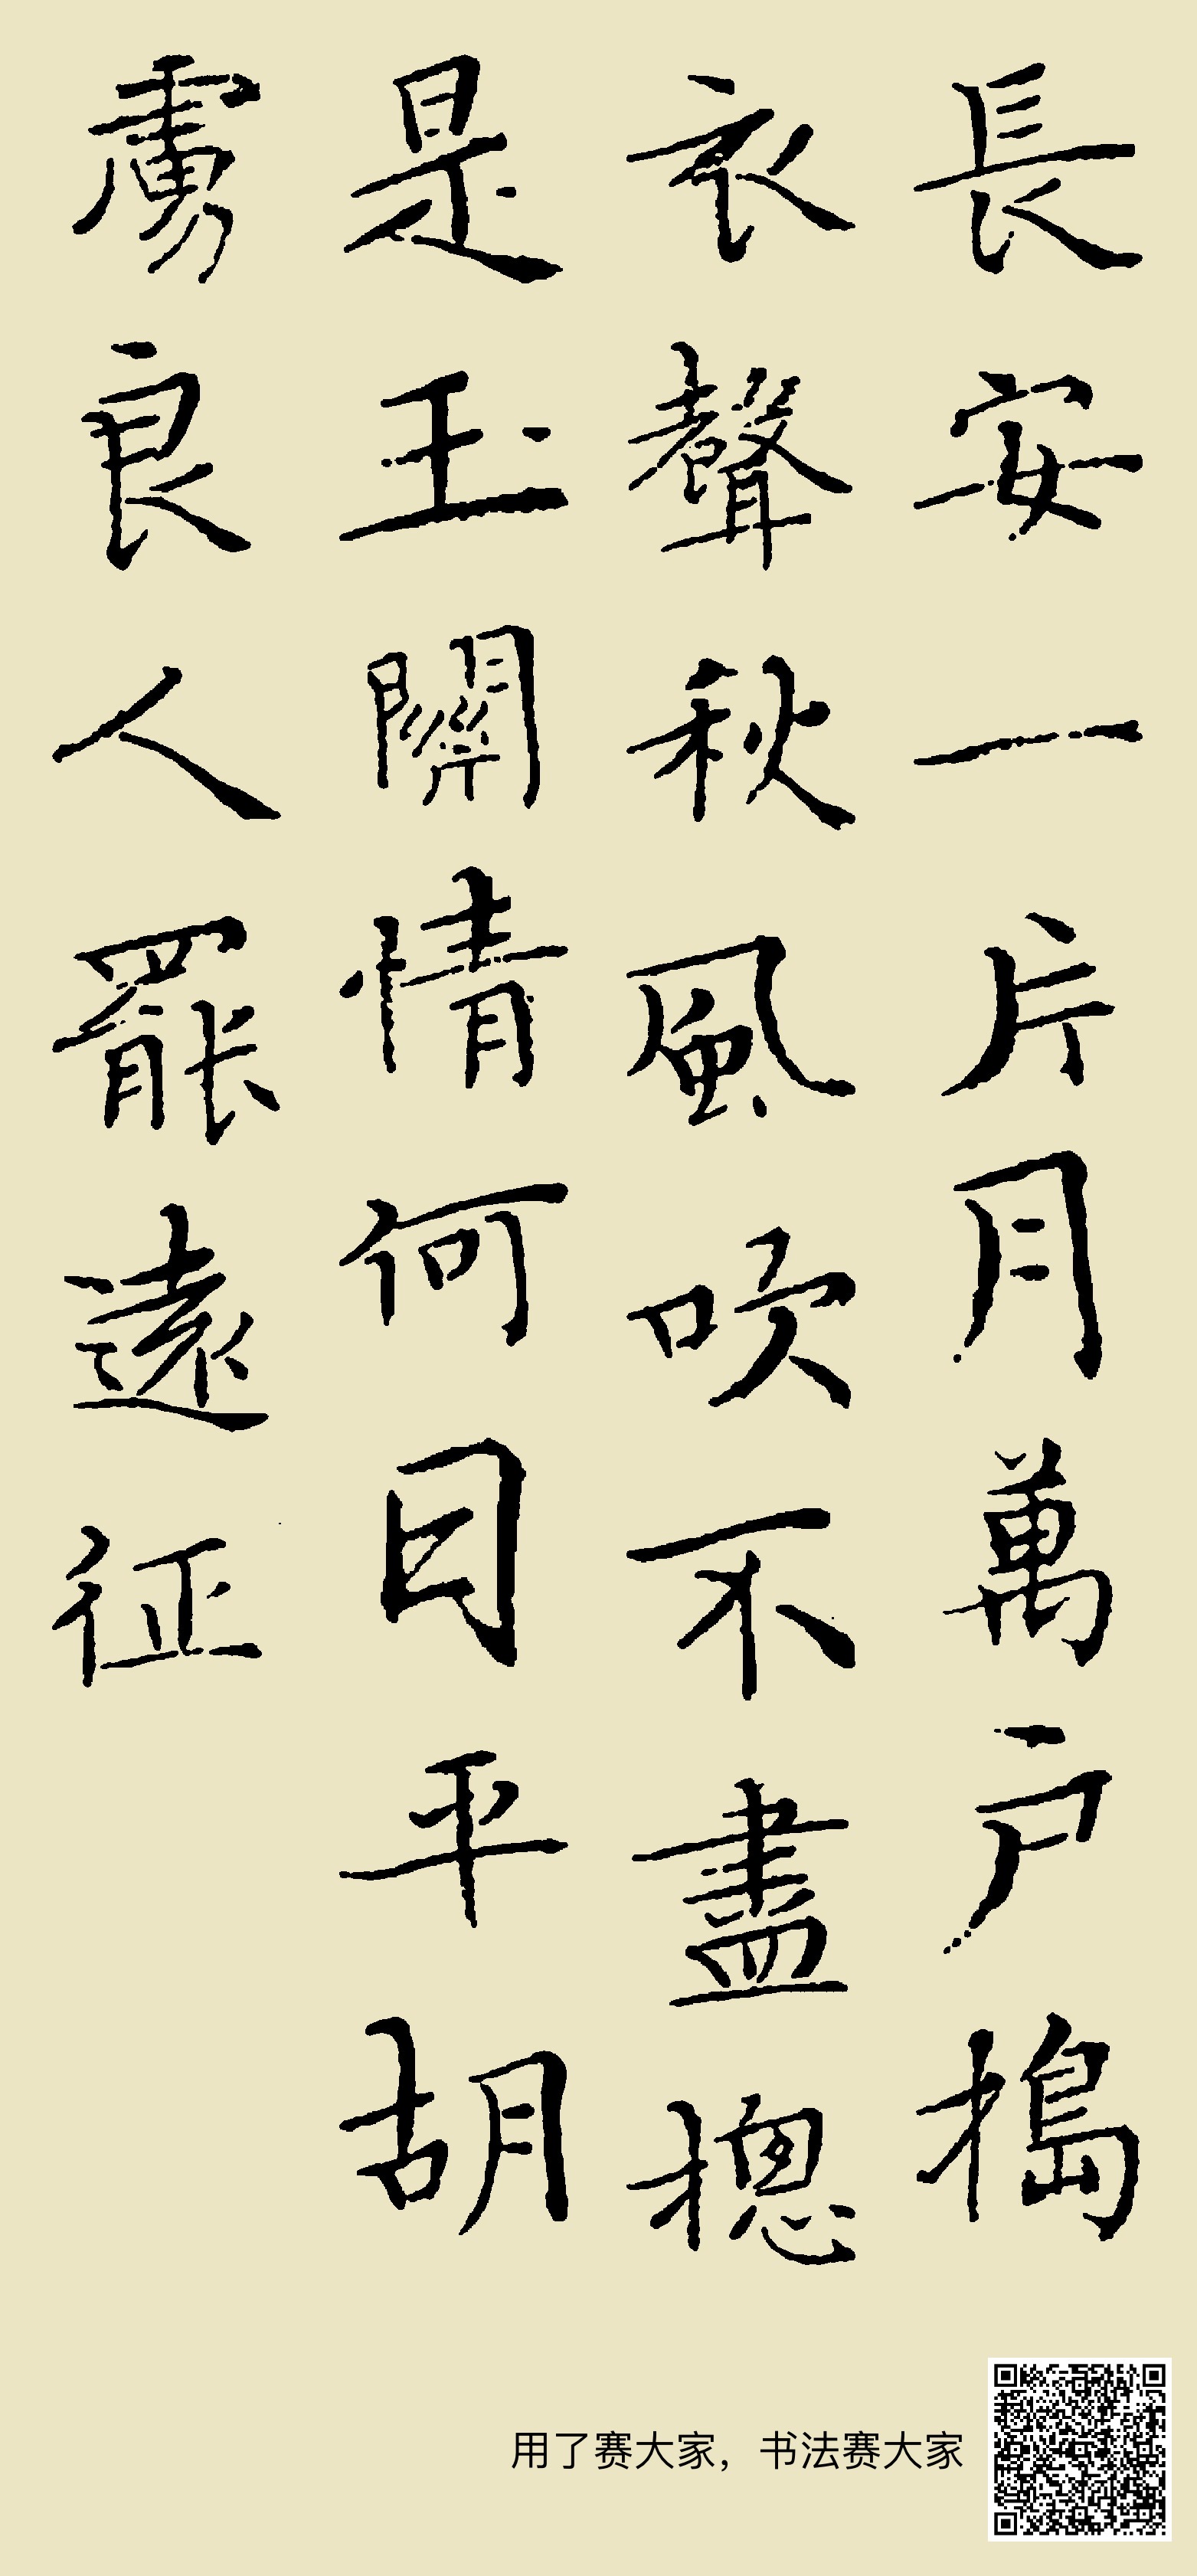 長安一片月萬戶搗
衣聲秋風吹不盡摠
是玉關情何日平胡
虜良人罷遠征
用了赛大家，书法赛大家